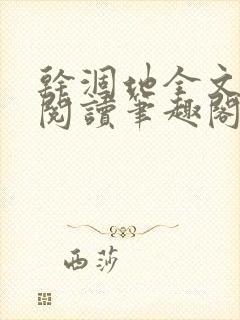 幹涸地全文
閱讀筆趣閣
西莎